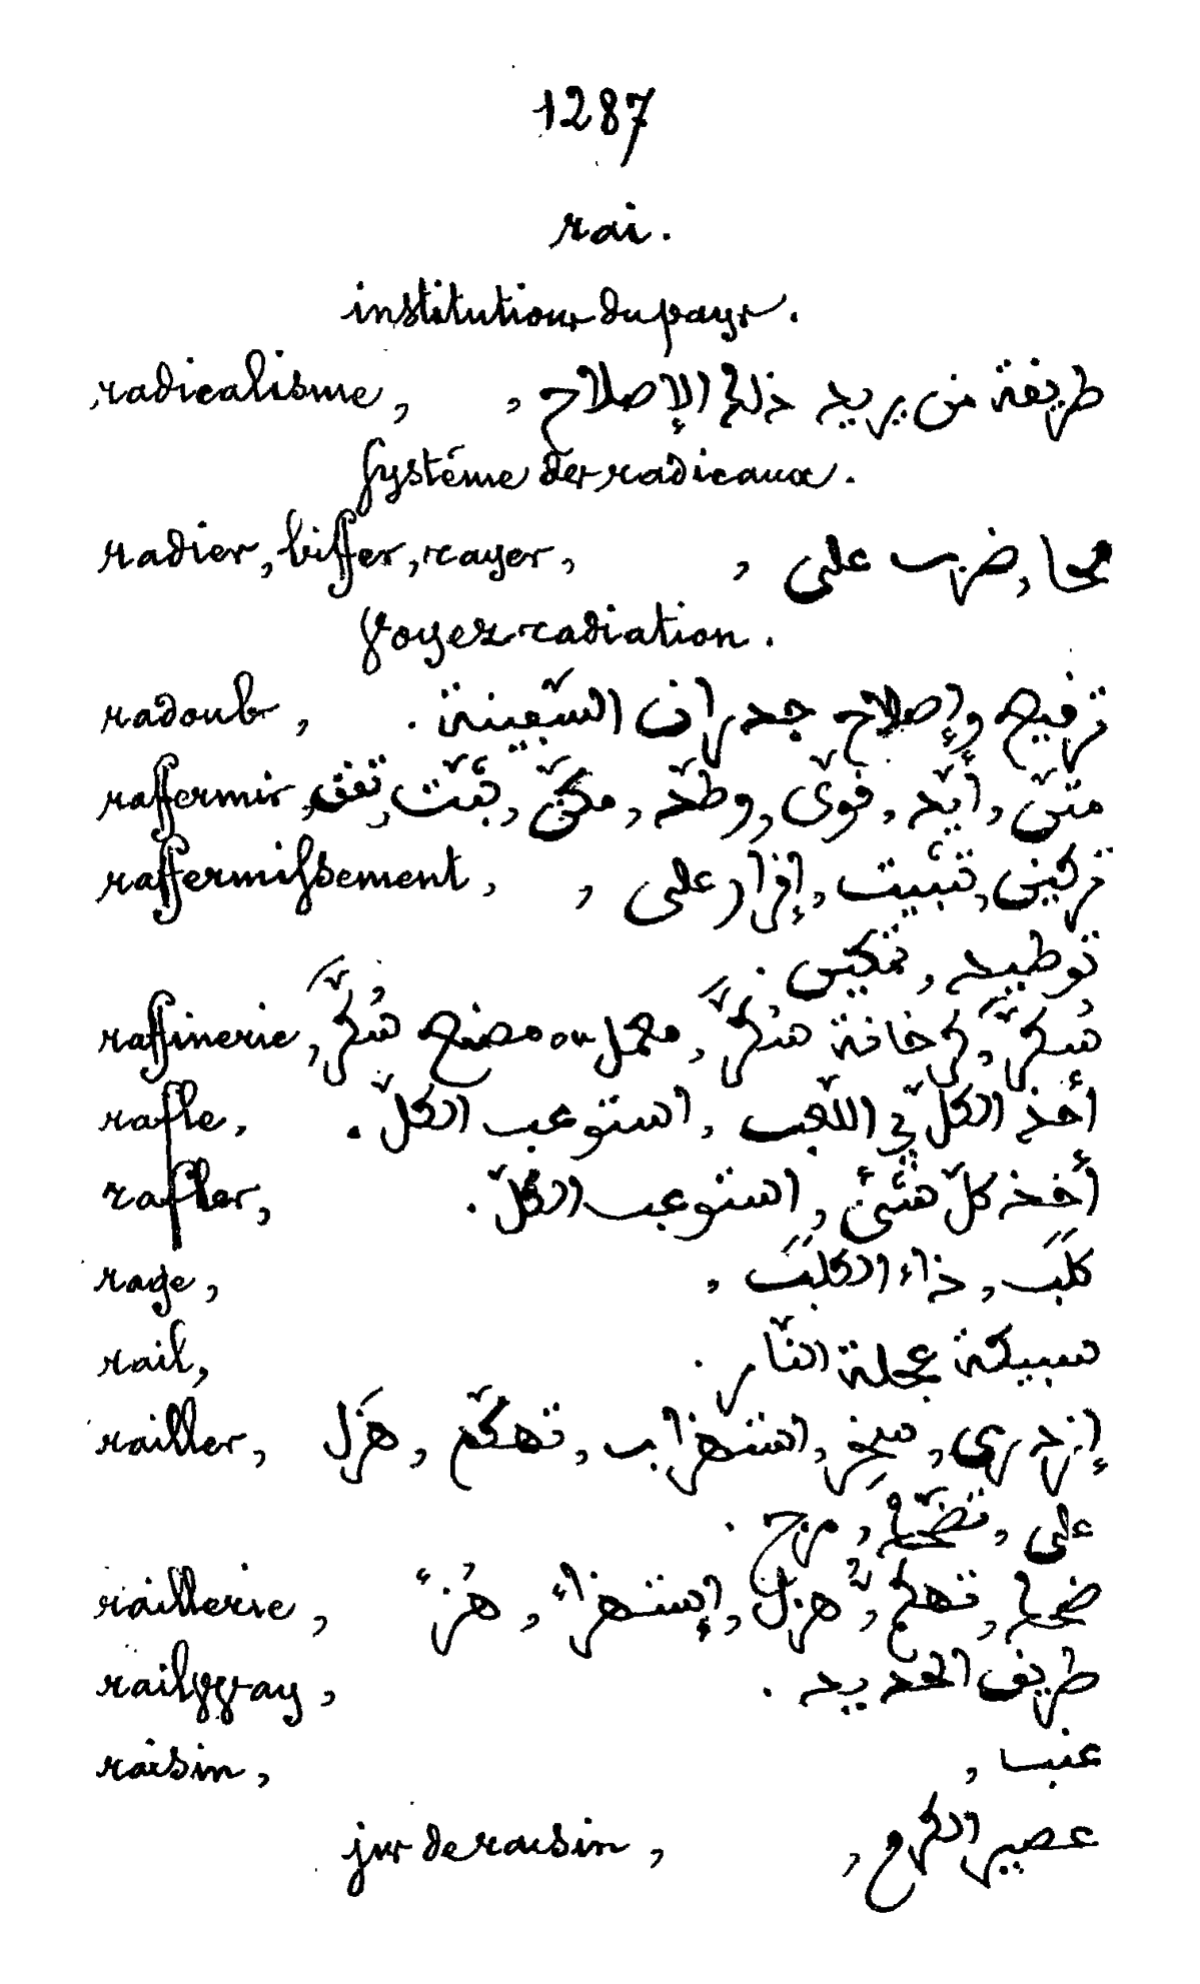 1287
rai.
institutions du pays.
radicalisme, طريقة من يريد ذلك الإصلاح,
système des radicaux.
radier, biffer, rayer, محا, ضرب على,
Voyez radiation.
radoub, ترقيع وإصلاح جدران السّفينة.
raffermir, متّن, أيّد, قوّى, وطّد, مكّن, ثبّت,
raffermissement, تركين, تثبيت, إقرار على,
توطيد, تمكين.
raffinerie, سُكّر, كرخانة سُكّر, معمل ou مصنع سُكّر,
rafle, أخذ الكلّ في اللّعب, استوعب الكلّ.
rafler, أخذ كلّ شئ, استوعب الكلّ.
rage, كلَب, داء الكلَب,
rail, سبيكة عجلة النّار.
railler, إزدرى, سخر, استهزا ب, تهكّم, هزَل
على, تضحّك, مزح.
raillerie, ضحك, تهكّم, هزل, إستهزاء, هُزء
railway, طريق الحديد.
raisin, عنب,
jus de raisin, عصير الكرم,